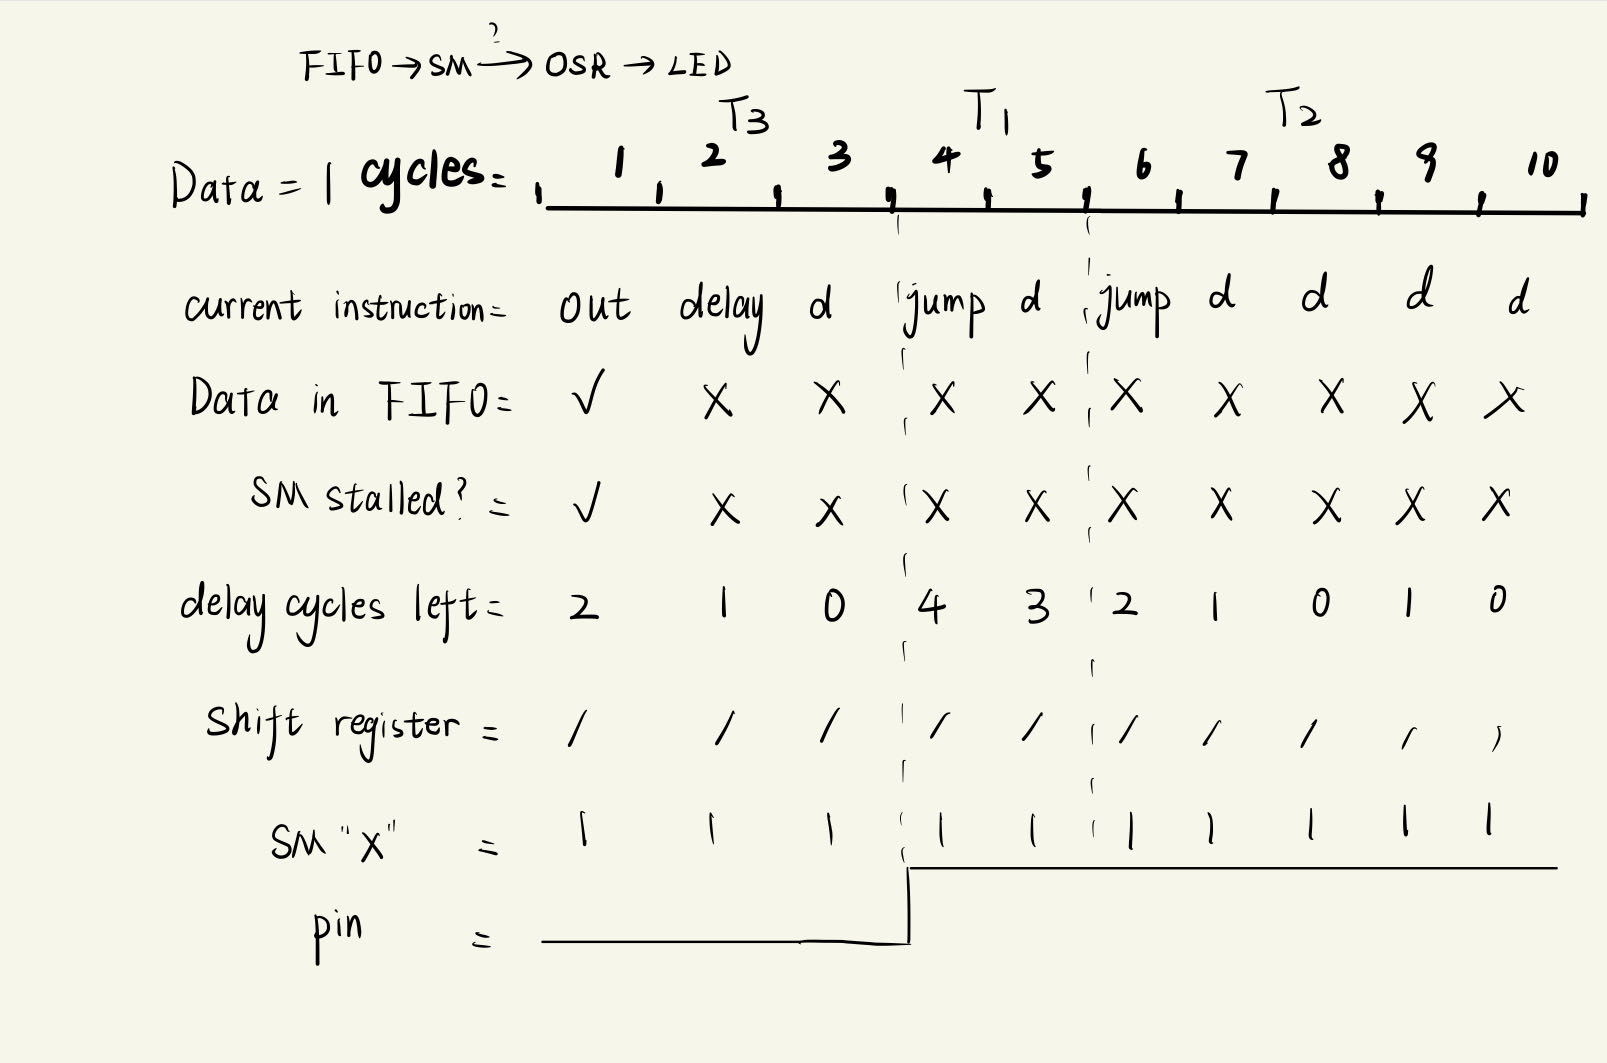 ?
FIFO → SM → OSR → LED
T3 T1 T2
Data = 1 cycles= 1 2 3 4 5 6 7 8 9 10
current instruction= out delay d jump d jump d d d d
Data in FIFO= ✓ X X X X X X X X X
SM stalled? = ✓ X X X X X X X X X
delay cycles left= 2 1 0 4 3 2 1 0 1 0
Shift register = / / / / / / / / / /
SM "X" = 1 1 1 1 1 1 1 1 1 1
pin =